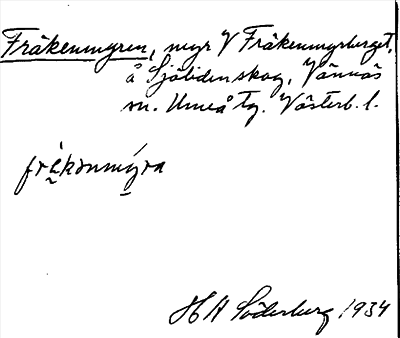 Fräkenmyren, myr V Fräkenmyrberget,
å Sjölidenskog, Vännäs
sn. Umeå tg. Västerb. l.
frä̀kənmýra
H A Söderberg 1934